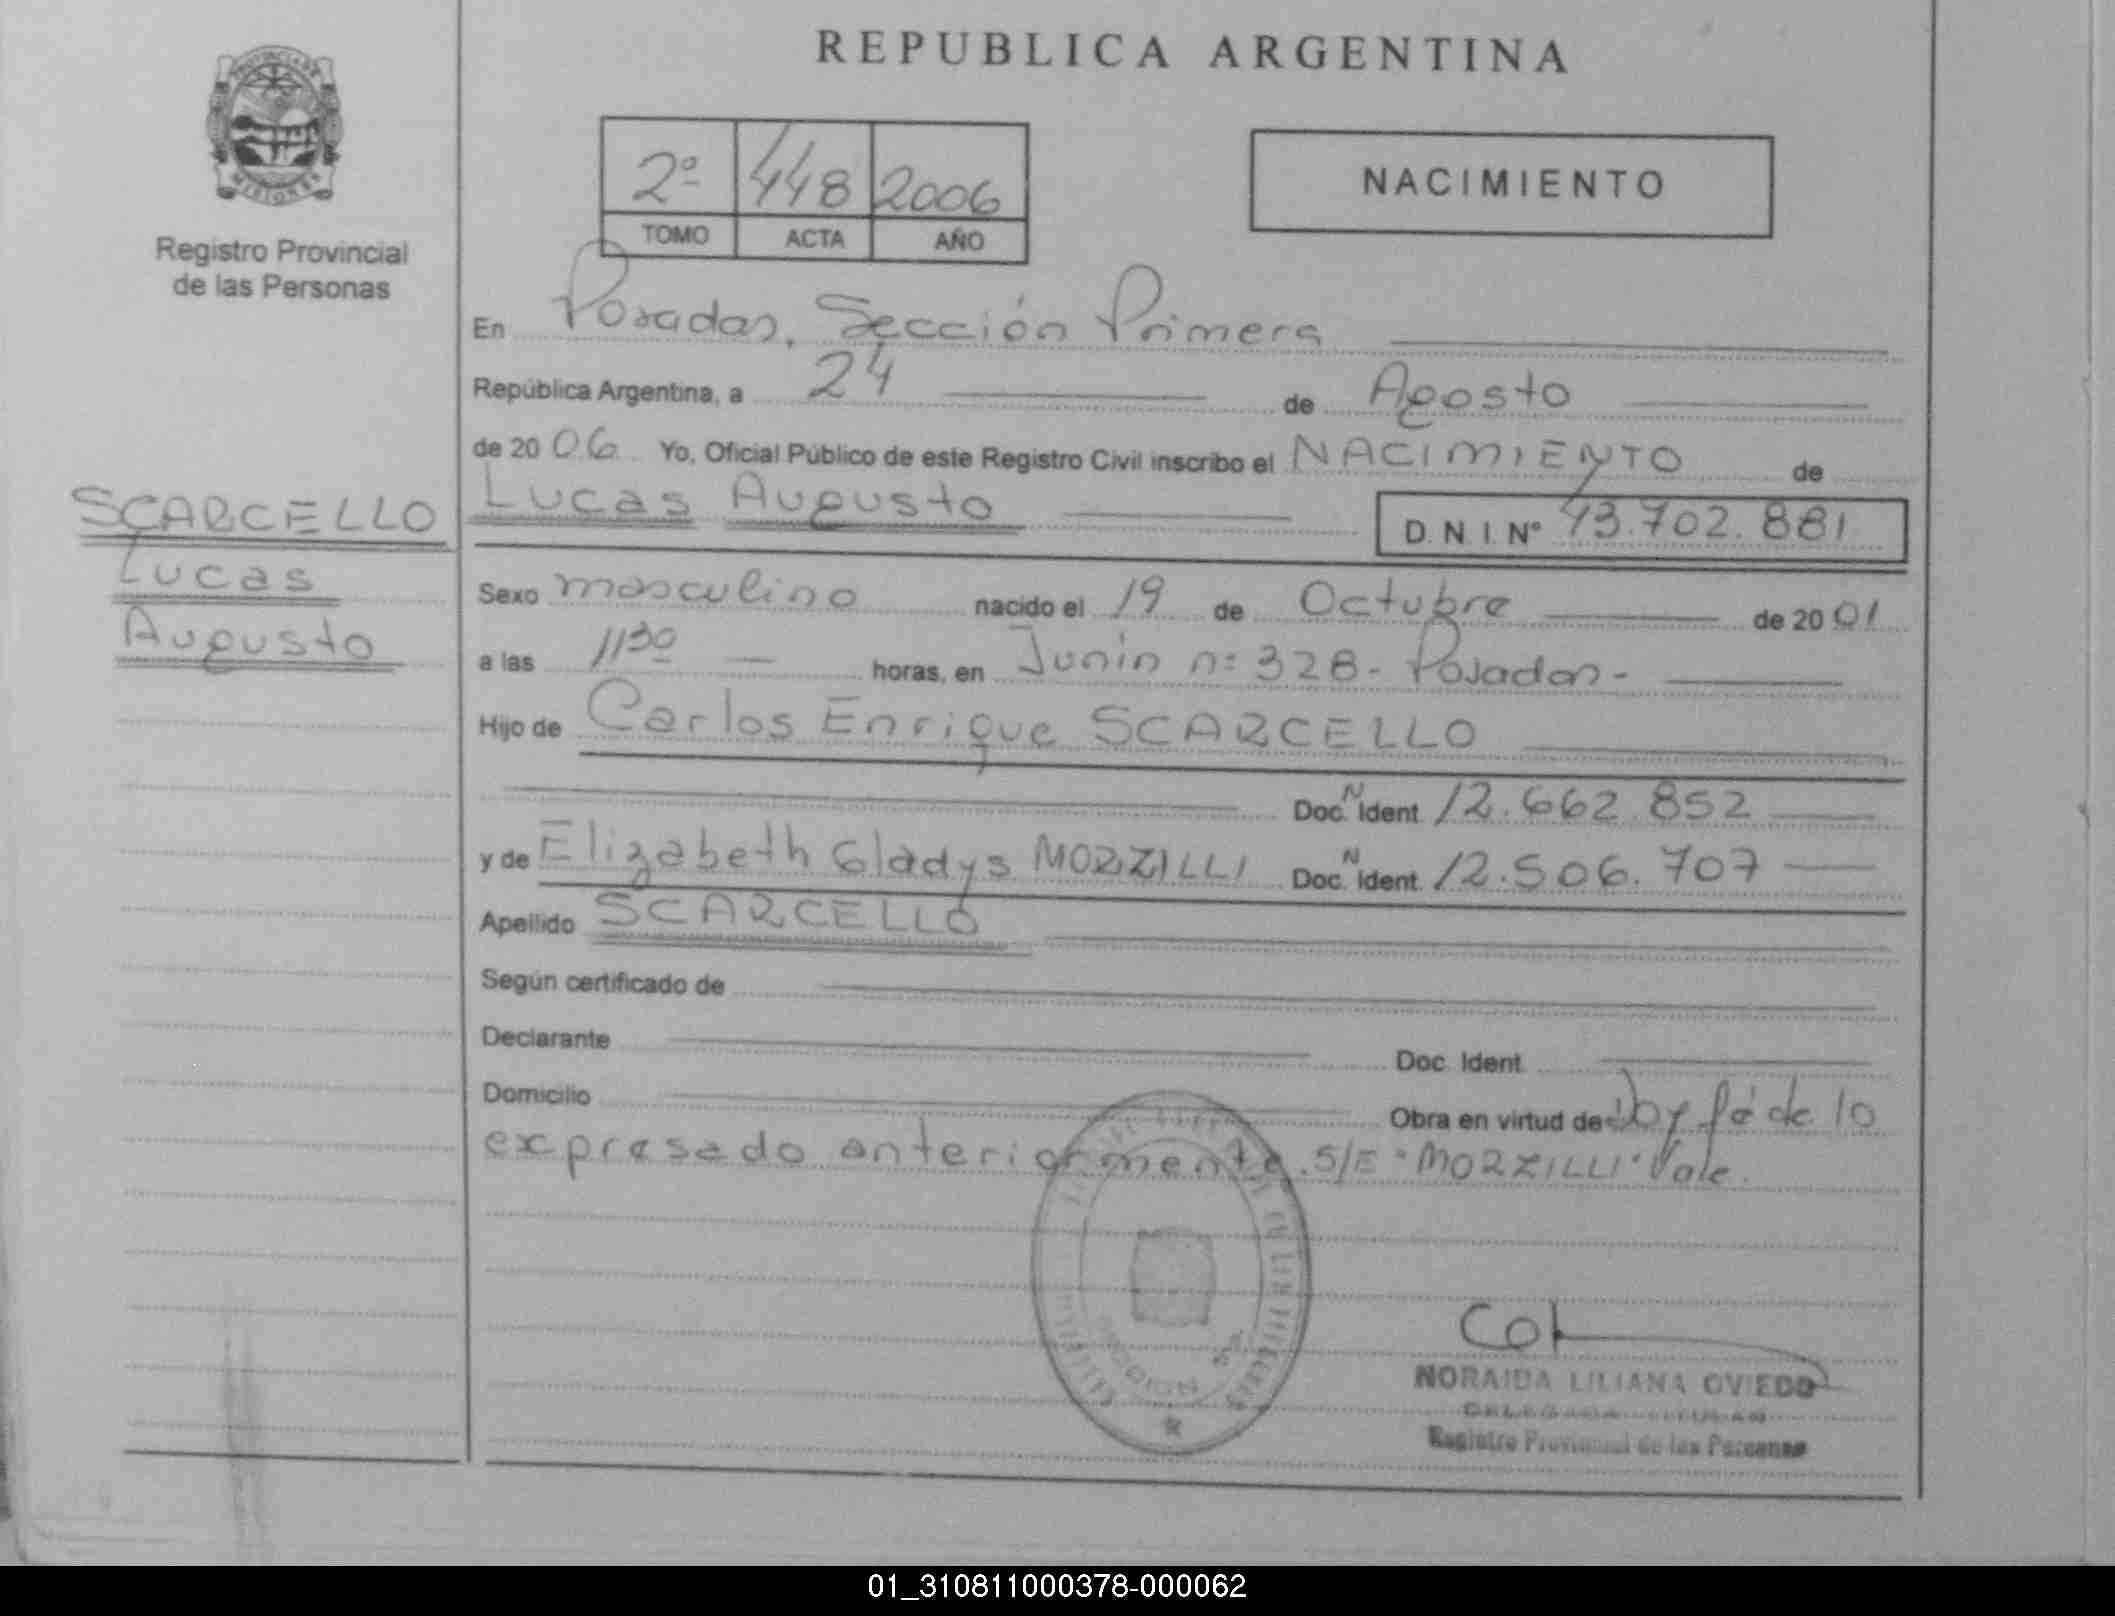 REPUBLICA ARGENTINA
PROVINCIA DE
MISIONES
Registro Provincial
de las Personas
2º 448 2006
TOMO ACTA AÑO
NACIMIENTO
En Posadas, Sección Primera
República Argentina, a 24 de Agosto
de 20 06 Yo, Oficial Público de este Registro Civil inscribo el NACIMIENTO de
SCARCELLO
Lucas
Augusto
Lucas Augusto D. N. I. Nº 43.702.881
Sexo masculino nacido el 19 de Octubre de 20 01
a las 11:30 horas, en Junín nº 328- Posadas-
Hijo de Carlos Enrique SCARCELLO
Doc. N Ident 12.662.852
y de Elizabeth Gladys MORZILLI Doc. N Ident. 12.506.707
Apellido SCARCELLO
Según certificado de
Declarante Doc. Ident.
Domicilio Obra en virtud de Doy fé de lo
expresado anteriormente. S/E "MORZILLI" Vale.
NORAIDA LILIANA OVIEDO
DELEGADA TITULAR
Registro Provincial de las Personas
01_310811000378-000062